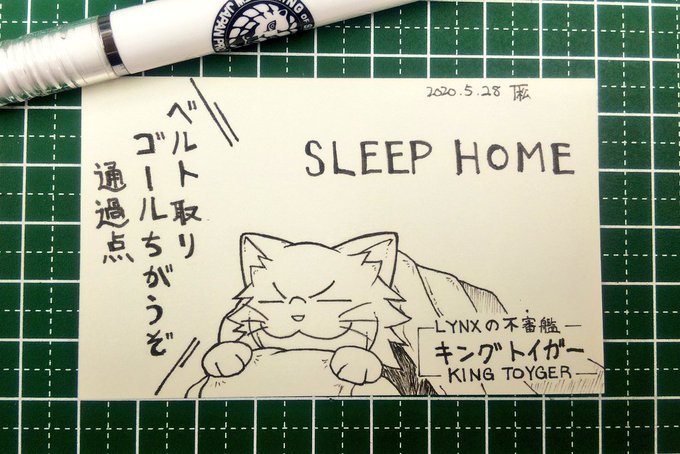 2020.5.28
SLEEP HOME
ベルト取り
ゴールちがうぞ
通過点
LYNXの不審艦
キングトイガー
KING TOYGER